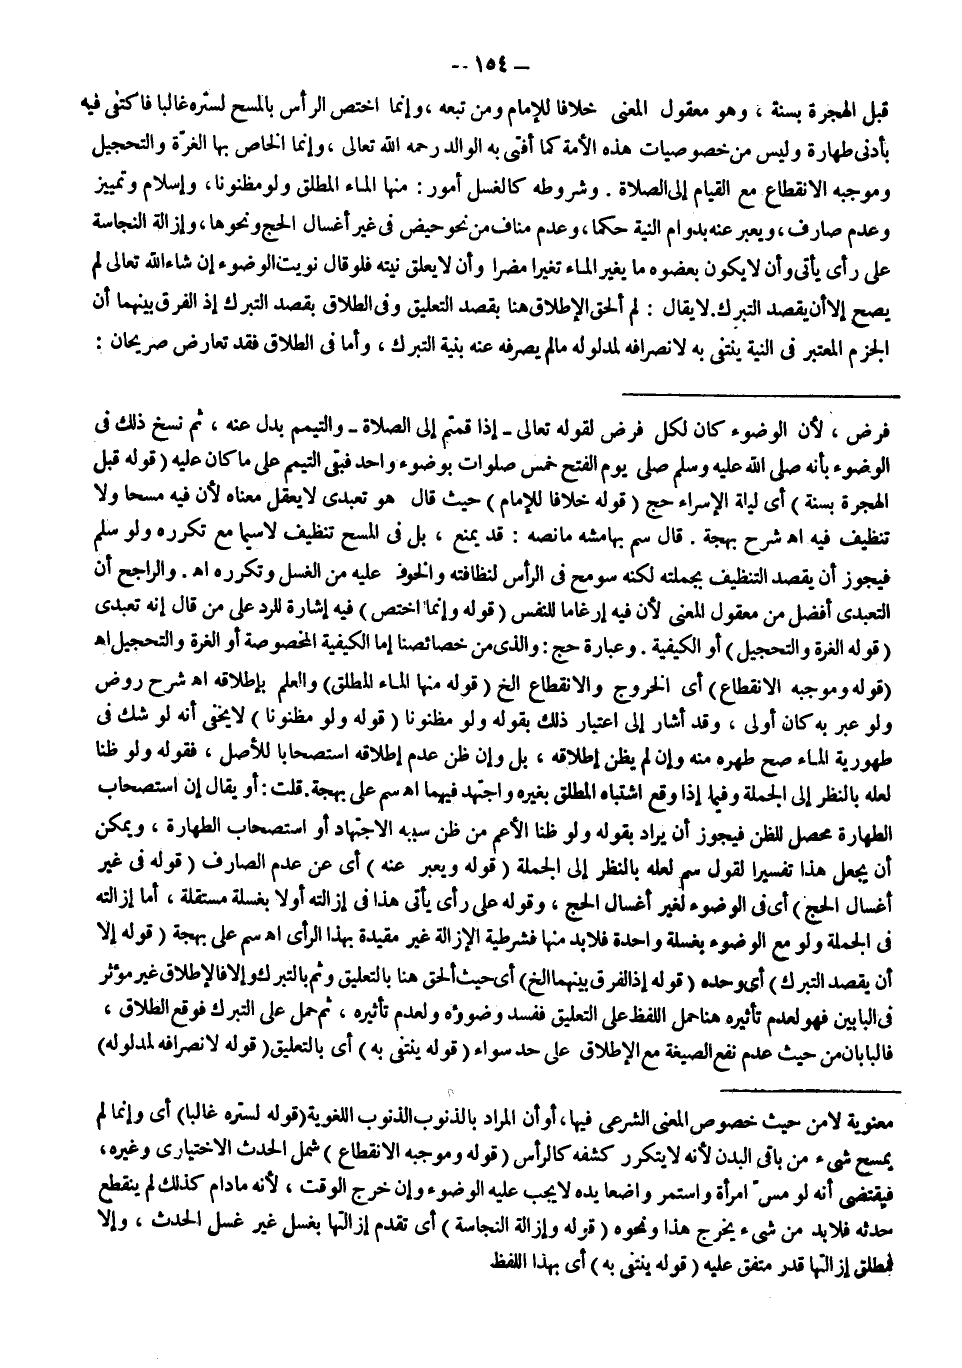 – ١٥٤ --
قبل الهجرة بسنة ، وهو معقول المعنى خلافا للإمام ومن تبعه ، وإنما اختص الرأس بالمسح لستره غالبا فاكتفى فيه
بأدنى طهارة وليس من خصوصيات هذه الأمة كما أفتى به الوالد رحمه الله تعالى ، وإنما الخاص بها الغرّة والتحجيل
وموجبه الانقطاع مع القيام إلى الصلاة . وشروطه كالغسل أمور : منها الماء المطلق ولو مظنونا ، وإسلام وتمييز
وعدم صارف ، ويعبر عنه بدوام النية حكما ، وعدم مناف من نحو حيض فى غير أغسال الحج ونحوها ، وإزالة النجاسة
على رأى يأتى وأن لا يكون بعضوه ما يغير الماء تغيرا مضرا وأن لا يعلق نيته فلو قال نويت الوضوء إن شاء الله تعالى لم
يصح إلا أن يقصد التبرك. لا يقال : لم ألحق الإطلاق هنا بقصد التعليق وفى الطلاق بقصد التبرك إذ الفرق بينهما أن
الجزم المعتبر فى النية ينتفى به لانصرافه لمدلوله مالم يصرفه عنه بنية التبرك ، وأما فى الطلاق فقد تعارض صريحان :
فرض ، لأن الوضوء كان لكل فرض لقوله تعالى ــ إذا قمتم إلى الصلاة ــ والتيمم بدل عنه ، ثم نسخ ذلك فى
الوضوء بأنه صلى الله عليه وسلم صلى يوم الفتح خمس صلوات بوضوء واحد فبقى التيمم على ما كان عليه ( قوله قبل
الهجرة بسنة ) أى ليلة الإسراء حج ( قوله خلافا للإمام ) حيث قال هو تعبدى لا يعقل معناه لأن فيه مسحا ولا
تنظيف فيه اه شرح بهجة . قال سم بهامشه مانصه : قد يمنع ، بل فى المسح تنظيف لاسيما مع تكرره ولو سلم
فيجوز أن يقصد التنظيف بجملته لكنه سومح فى الرأس لنظافته والخوف عليه من الغسل وتكرره اه . والراجح أن
التعبدى أفضل من معقول المعنى لأن فيه إرغاما للنفس ( قوله وإنما اختص ) فيه إشارة للرد على من قال إنه تعبدى
( قوله الغرة والتحجيل ) أو الكيفية . وعبارة حج : والذى من خصائصنا إما الكيفية المخصوصة أو الغرة والتحجيل اه
(قوله وموجبه الانقطاع) أى الخروج والانقطاع الخ ( قوله منها الماء المطلق) والعلم بإطلاقه اه شرح روض
ولو عبر به كان أولى ، وقد أشار إلى اعتبار ذلك بقوله ولو مظنونا ( قوله ولو مظنونا ) لا يخفى أنه لو شك فى
طهورية الماء صح طهره منه وإن لم يظن إطلاقه ، بل وإن ظن عدم إطلاقه استصحابا للأصل ، فقوله ولو ظنا
لعله بالنظر إلى الجملة وفيما إذا وقع اشتباه المطلق بغيره واجتهد فيهما اه سم على بهجة. قلت : أو يقال إن استصحاب
الطهارة محصل للظن فيجوز أن يراد بقوله ولو ظنا الأعم من ظن سببه الاجتهاد أو استصحاب الطهارة ، ويمكن
أن يجعل هذا تفسيرا لقول سم لعله بالنظر إلى الجملة ( قوله ويعبر عنه ) أى عن عدم الصارف ( قوله فى غير
أغسال الحج ) أى فى الوضوء لغير أغسال الحج ، وقوله على رأى يأتى هذا فى إزالته أولا بغسلة مستقلة ، أما إزالته
فى الجملة ولو مع الوضوء بغسلة واحدة فلابد منها فشرطية الإزالة غير مقيدة بهذا الرأى اه سم على بهجة ( قوله إلا
أن يقصد التبرك ) أى وحده ( قوله إذ الفرق بينهما الخ ) أى حيث ألحق هنا بالتعليق وثم بالتبرك وإلا فالإطلاق غير مؤثر
فى البابين فهو لعدم تأثيره هنا حمل اللفظ على التعليق ففسد وضوؤه ولعدم تأثيره ، ثم حمل على التبرك فوقع الطلاق ،
فالبابان من حيث عدم نفع الصيغة مع الإطلاق على حد سواء ( قوله ينتفى به ) أى بالتعليق ( قوله لانصرافه لمدلوله)
معنوية لا من حيث خصوص المعنى الشرعى فيها ، أو أن المراد بالذنوب الذنوب اللغوية (قوله لستره غالبا) أى وإنما لم
يمسح شىء من باقى البدن لأنه لا يتكرر كشفه كالرأس ( قوله وموجبه الانقطاع ) شمل الحدث الاختيارى وغيره ،
فيقتضى أنه لو مسّ امرأة واستمر واضعا يده لا يجب عليه الوضوء وإن خرج الوقت ، لأنه مادام كذلك لم ينقطع
حدثه فلابد من شىء يخرج هذا ونحوه ( قوله وإزالة النجاسة ) أى تقدم إزالتها بغسل غير غسل الحدث ، وإلا
فمطلق إزالتها قدر متفق عليه ( قوله ينتفى به ) أى بهذا اللفظ